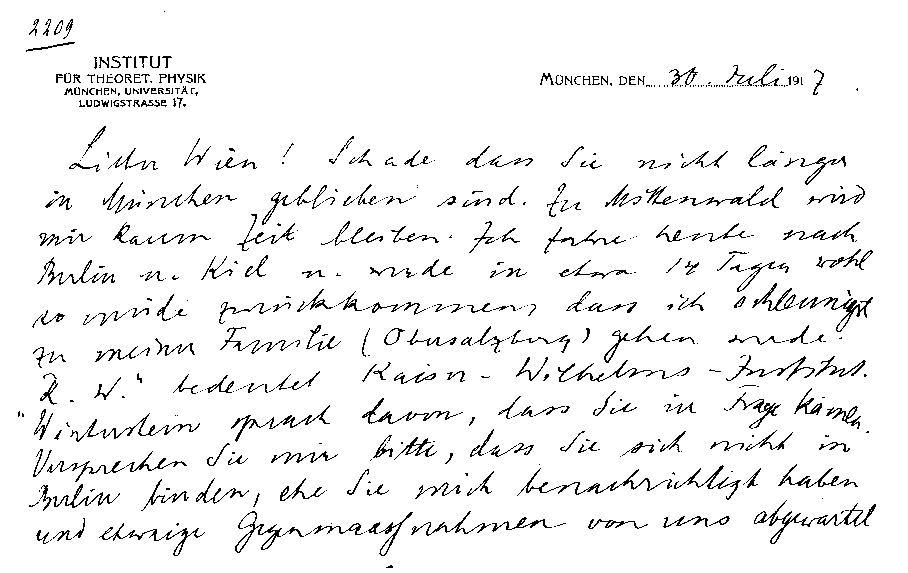 2209
INSTITUT
FÜR THEORET. PHYSIK
MÜNCHEN, UNIVERSITÄT,
LUDWIGSTRASSE 17.
MÜNCHEN, DEN 30. Juli 1917.
Lieber Wien! Schade dass Sie nicht länger
in München geblieben sind. Zu Mittenwald wird
mir kaum Zeit bleiben. Ich fahre heute nach
Berlin u. Kiel u. werde in etwa 14 Tagen wohl
so müde zurückkommen, dass ich schleunigst
zu meiner Familie (Obersalzberg) gehen werde.
"K. W." bedeutet Kaiser-Wilhelms-Institut.
Winterstein sprach davon, dass Sie in Frage kämen.
Versprechen Sie mir bitte, dass Sie sich nicht in
Berlin binden, ehe Sie mich benachrichtigt haben
und etwaige Gegenmaassnahmen von uns abgewartet